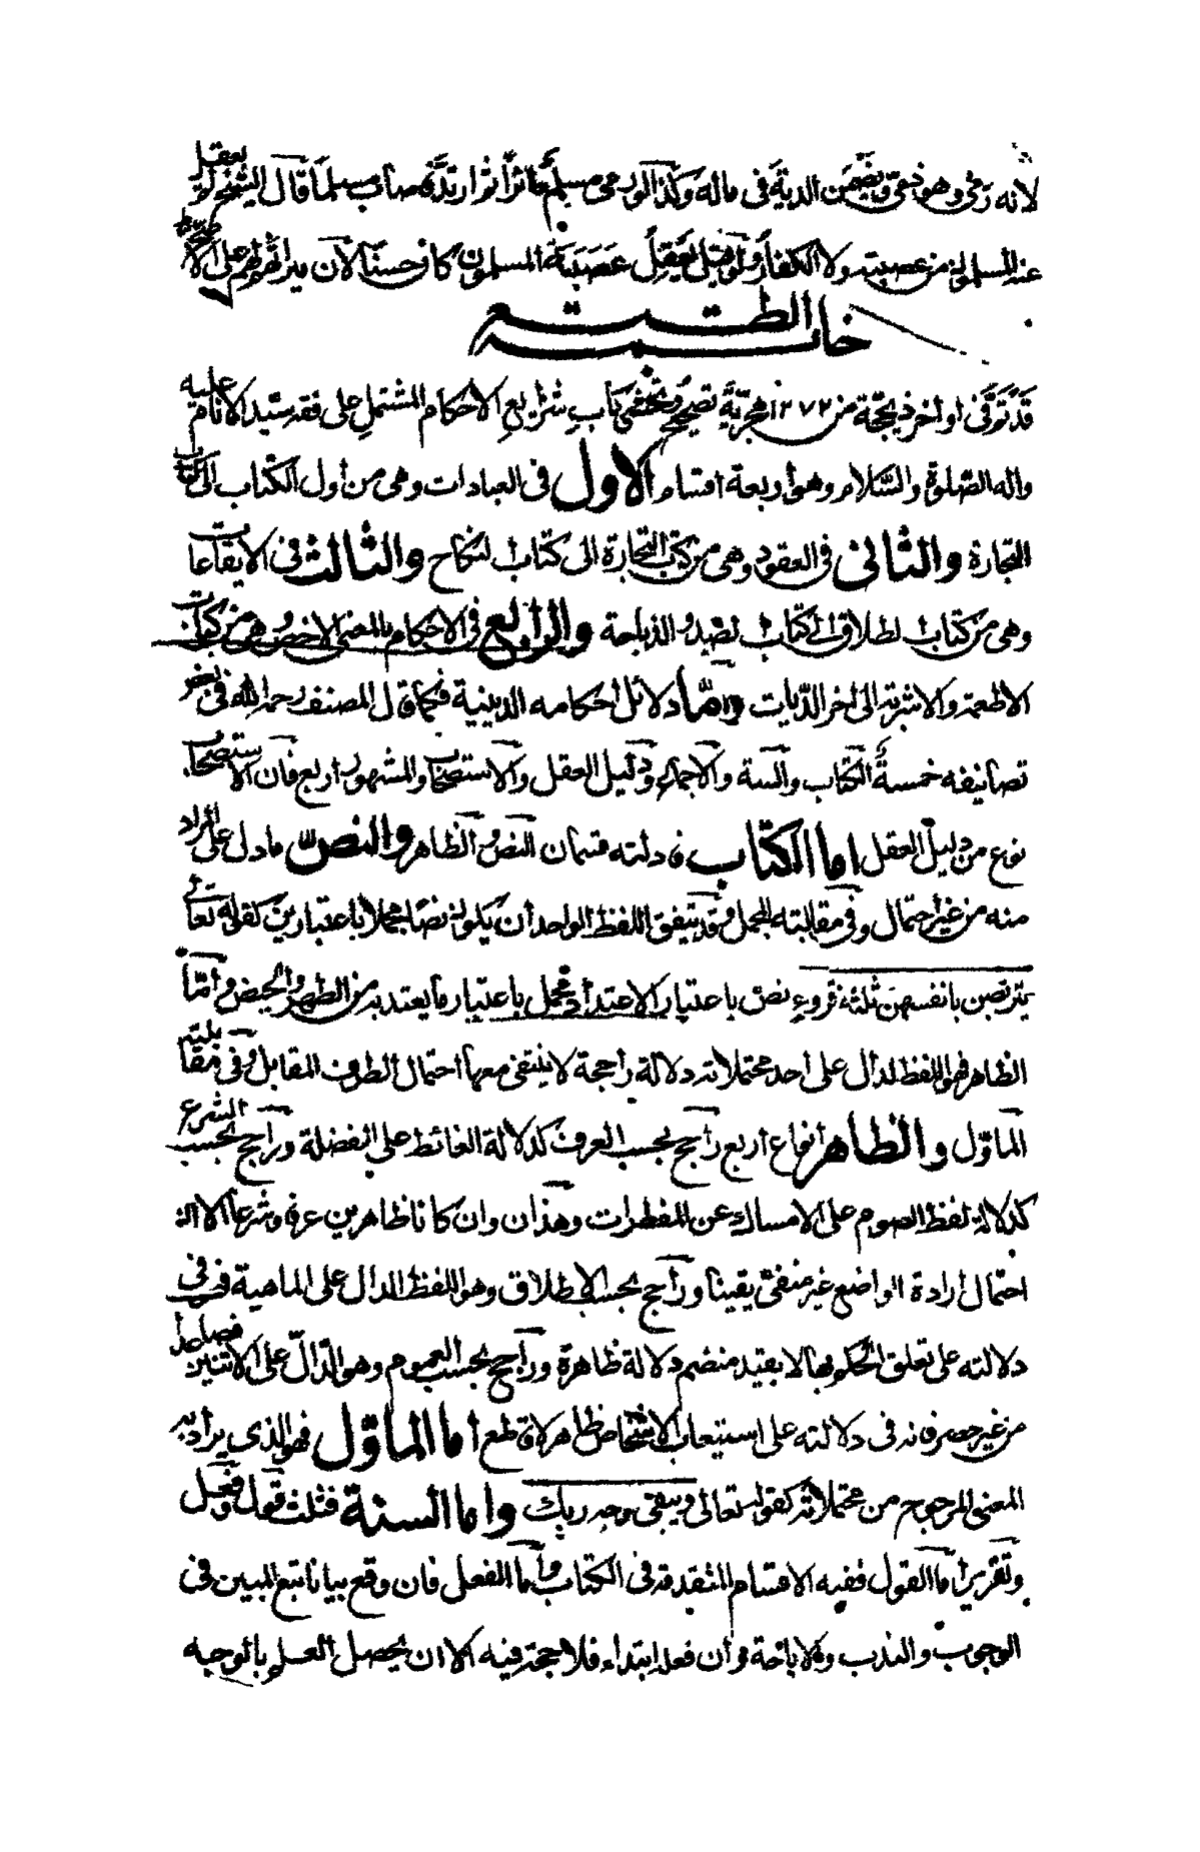 لانه رمى وهو ذمى ويضمن الدية فى ماله وكذا لو رمى مسلم طائرا ثم ارتد فاصاب مسلما قال الشيخ لا يعقل
عنه المسلمون من عصبته ولا الكفار ولو قيل يعقل عصبته المسلمون كان حسنا لان ميراثه لهم على الاصح
خاتمة الطبع
قد توفى اواخر ذيحجة من ١٢٧٢ هجرية تصحيح كتاب شرايع الاحكام المشتمل على فقه سيد الانام عليه
واله الصلوة والسلام وهو اربعة اقسام الاول فى العبادات وهى من أول الكتاب الى كتاب
التجارة والثانى فى العقود وهى من كتاب التجارة الى كتاب النكاح والثالث فى الايقاعات
وهى من كتاب الطلاق الى كتاب الصيد والذباحة والرابع فى الاحكام بالمعنى الاخص وهى من كتاب
الاطعمة والاشربة الى اخر الديات واما دلائل احكامه الدينية فكما قال المصنف رحمه الله فى بعض
تصانيفه خمسة الكتاب والسنة والاجماع ودليل العقل والاستصحاب والمشهور اربع فان الاستصحاب
نوع من دليل العقل اما الكتاب فادلته قسمان النص والظاهر والنص ما دل على المراد
منه من غير احتمال وفى مقابلته المجمل وقد يتفق اللفظ الواحد أن يكون نصا مجملا باعتبارين كقوله تعالى
يتربصن بانفسهن ثلثة قروء نص باعتبار الاعتداد مجمل باعتبار ما يعتد به من الطهر والحيض واما
الظاهر فهو اللفظ الدال على احد محتملاته دلالة راجحة لا ينتفى معها احتمال الطرف المقابل وفى مقابلته
الماوّل والظاهر انواع اربع راجح بحسب العرف كدلالة الغائط على الفضلة وراجح بحسب الشرع
كدلالة لفظ الصوم على الامساك عن المفطرات وهذان وان كانا ظاهرين عرفا وشرعا الا ان
احتمال أرادة الواضع غير منفى يقينا وراجح بحسب الاطلاق وهو اللفظ الدال على الماهية فهو فى
دلالته على تعلق الحكم بها لا بقيد منضم دلالة ظاهرة وراجح بحسب العموم وهو الدّالّ على الاثنين فصاعدا
من غير حصر فانه فى دلالته على استيعاب الاشخاص ظاهر لا قطع اما الماوّل فهو الذى يراد به
المعنى المرجوح من محتملاته كقوله تعالى ويبقى وجه ربك واما السنة فثلث قول وفعل
وتقرير أما القول ففيه الاقسام المتقدمة فى الكتاب وأما الفعل فان وقع بيانا تبع المبين فى
الوجوب والندب والاباحة وأن فعله ابتداء فلا حجة فيه الا ان يحصل العلم بالوجه